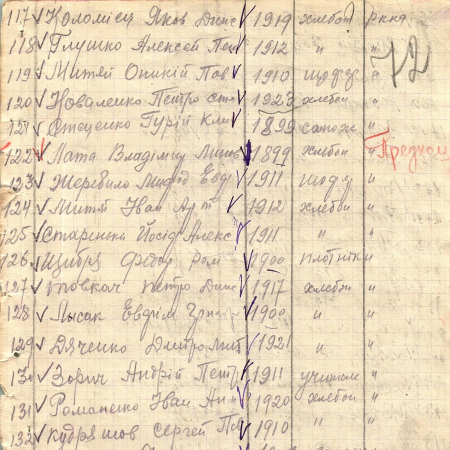 117 Коломієц Яков Дис 1919 хлебоп РККА
118 Глушко Алексей Пав 1912 "
119 Митяй Оникій Пав 1910 шофер "
120 Коваленко Петро 1923 хлебоп "
121 Стеценко Гурій Клим 1899 сапожн "
122 Лата Владімир 1899 хлебоп "
123 Жеребило Мифод Евд 1911 "
124 Митяй Іван 1912 хлебоп "
125 Старенки Йосід Алекс 1911 " "
126 Федор Ром 1900 плотник "
127 Товкач Петро Дис 1917 хлебоп "
128 Лысак Евдрім 1900 " "
129 Дяченко Дмитро Мит 1921 " "
130 Зорич Андрій Петр 1911 учитель "
131 Романенко Іван 1920 хлебоп "
132 Кудряшов Сергей Пав 1910 " "
72